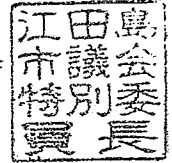 江田島
市議会
特別委
員長